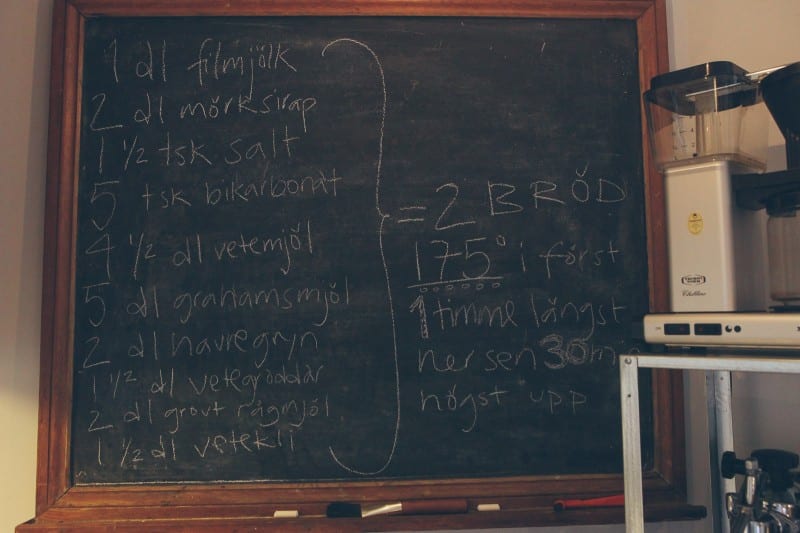 1 dl filmjölk
2 dl mörksirap
1 1/2 tsk salt
5 tsk bikarbonat
4 1/2 dl vetemjöl
5 dl grahamsmjöl
2 dl havregryn
1 1/2 dl vetegroddar
2 dl grovt rågmjöl
1 1/2 dl vetekli
= 2 BRÖD
175° i först
1 timme längst
ner sen 30
högst upp